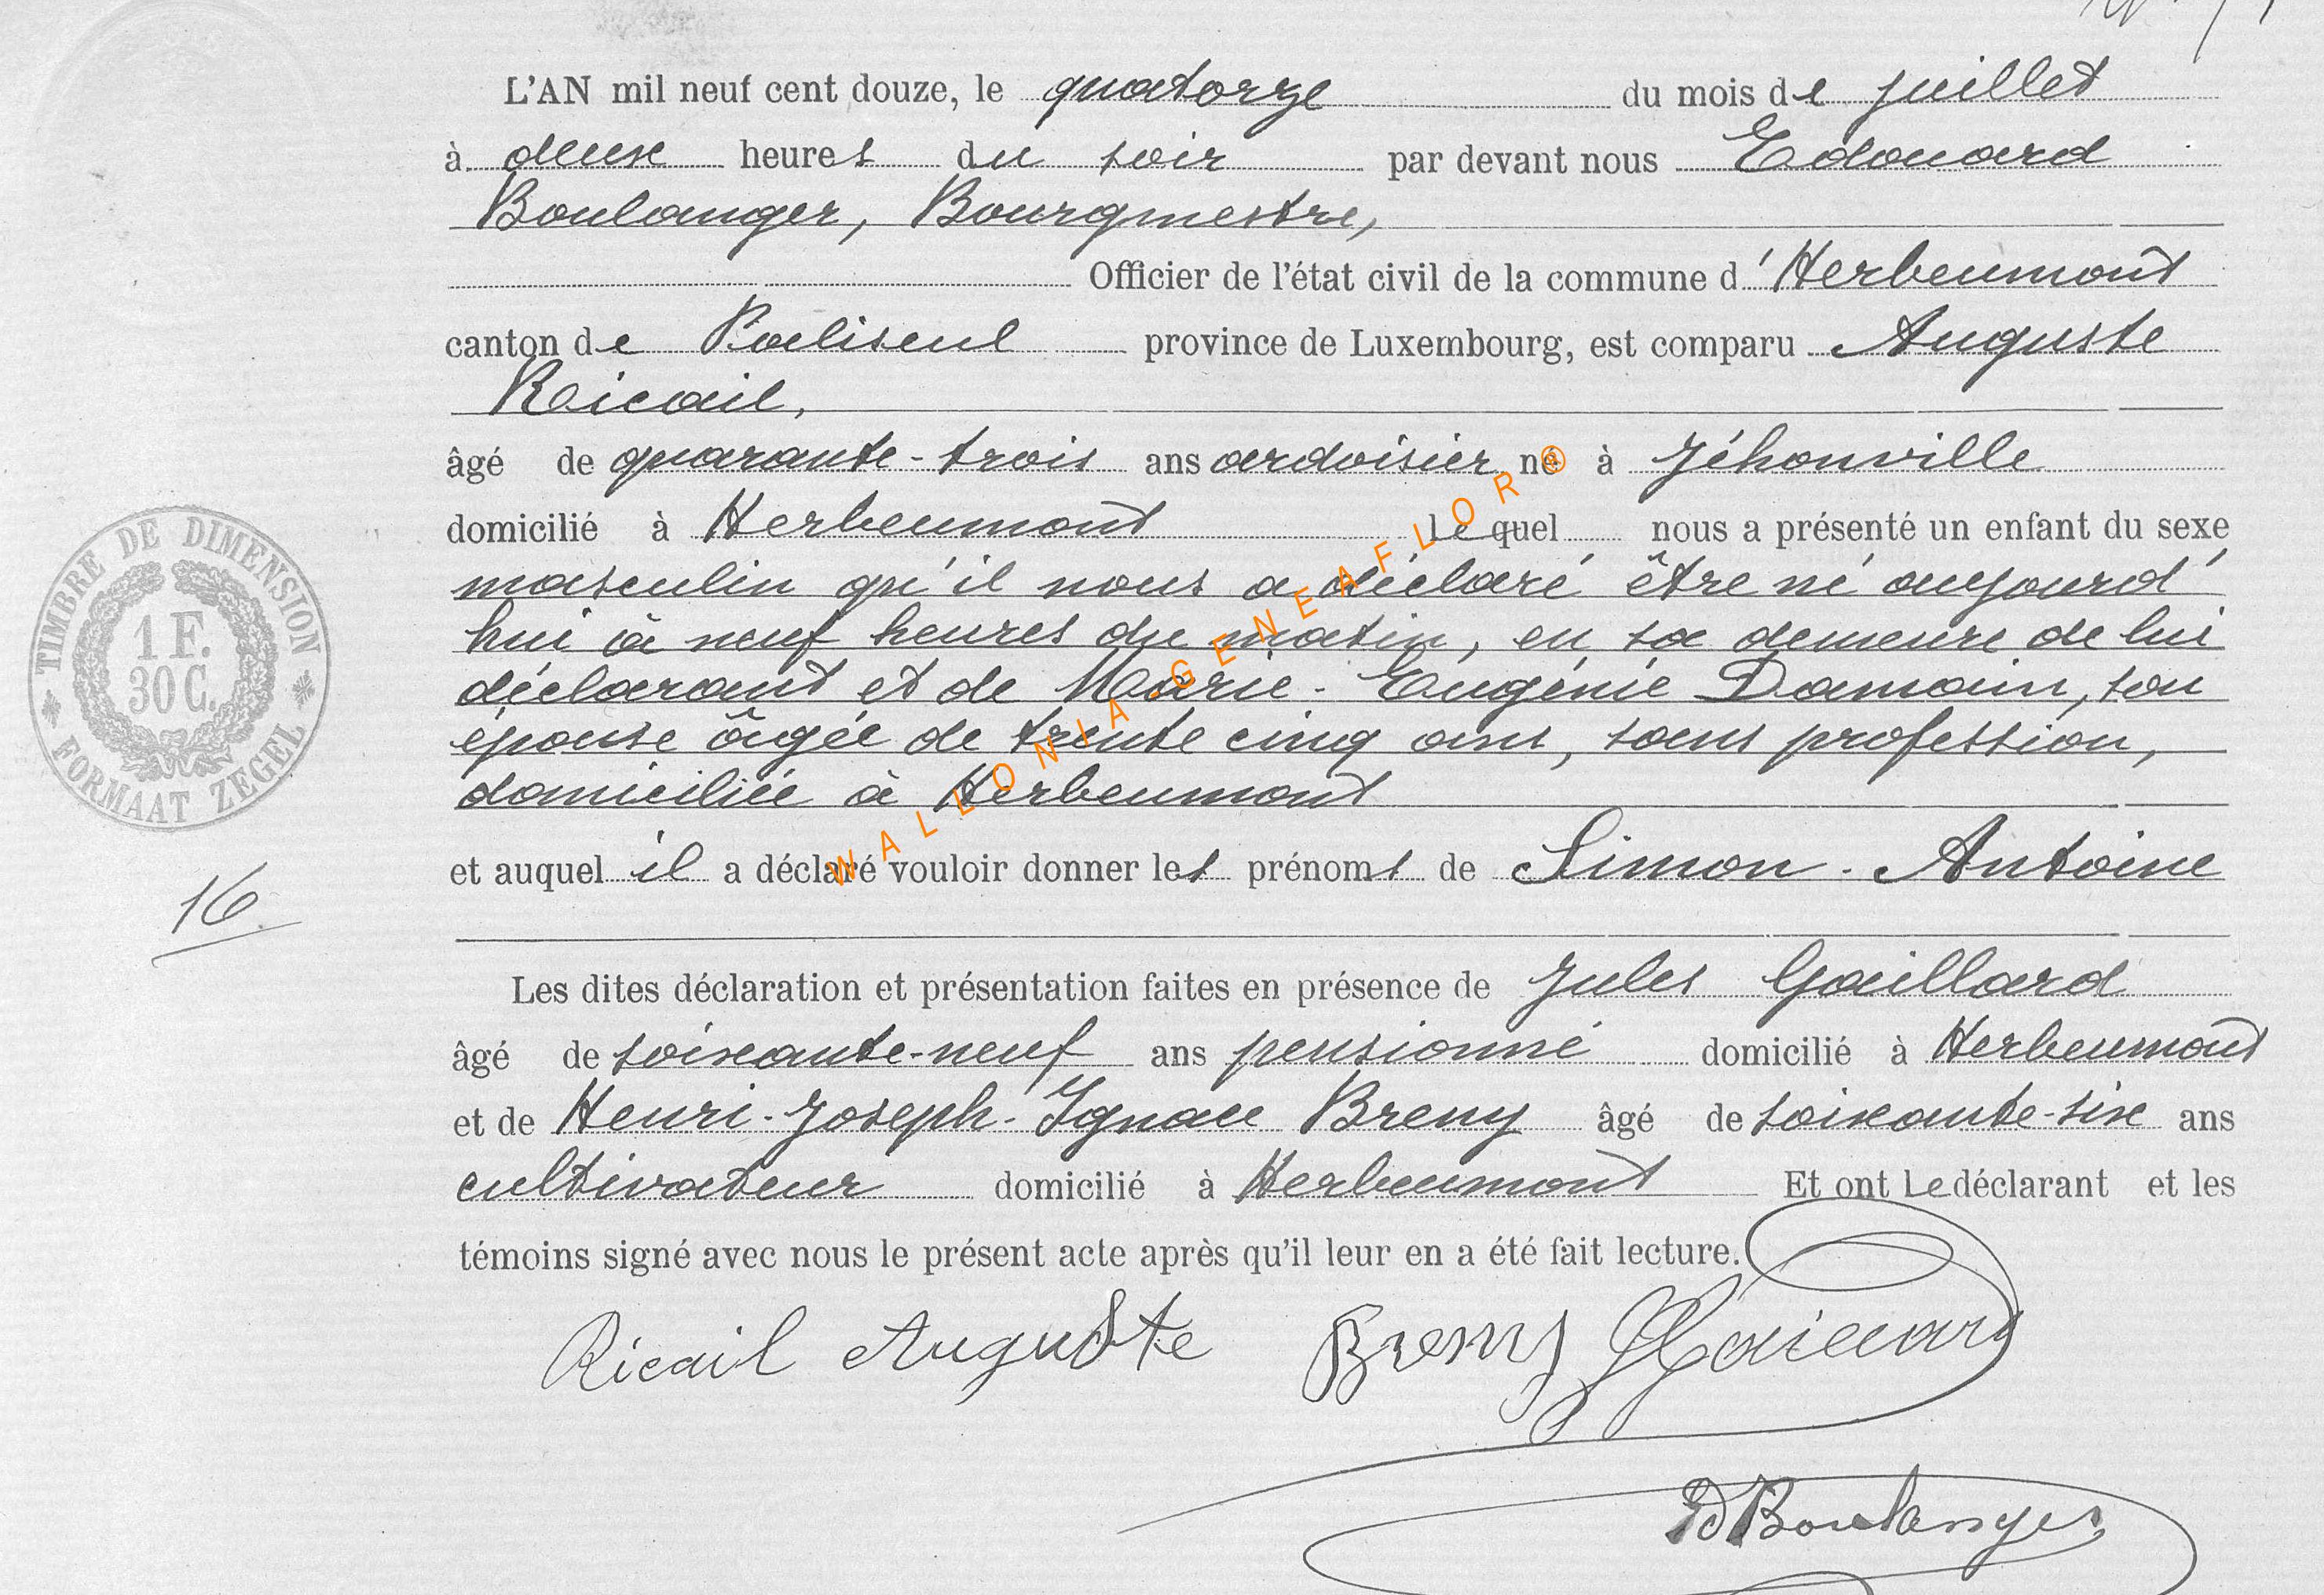 L'AN mil neuf cent douze, le quatorze du mois de juillet
à deux heures du soir par devant nous Edouard
Boulanger, Bourgmestre,
Officier de l'état civil de la commune d'Herbeumont
canton de Paliseul province de Luxembourg, est comparu Auguste
Ricail,
âgé de quarante-trois ans ardoisier né à Jéhonville
domicilié à Herbeumont lequel nous a présenté un enfant du sexe
masculin qu'il nous a déclaré être né aujourd'
hui à neuf heures du matin, en sa demeure de lui
déclarant et de Marie-Eugénie Damain, son
épouse âgée de trente cinq ans, sans profession,
domiciliée à Herbeumont
et auquel il a déclaré vouloir donner les prénoms de Simon-Antoine
Les dites déclaration et présentation faites en présence de Jules Gaillard
âgé de soixante-neuf ans pensionné domicilié à Herbeumont
et de Henri-Joseph-Ignace Breny âgé de soixante-six ans
cultivateur domicilié à Herbeumont Et ont le déclarant et les
témoins signé avec nous le présent acte après qu'il leur en a été fait lecture.
Ricail Auguste Breny JGaillard
Ed Boulanger
TIMBRE DE DIMENSION
1 F.
30 C.
FORMAAT ZEGEL
16
WALLONIA-GENEAFLOR®